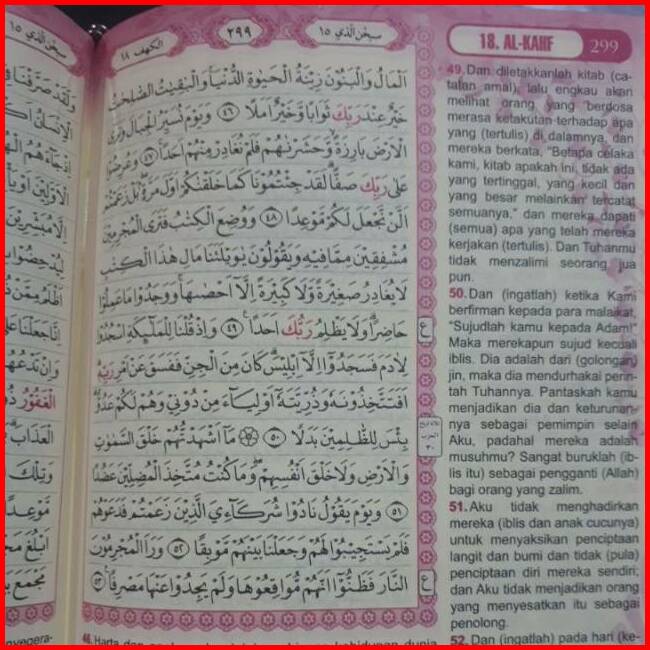 سبحن الذي ١٥
٢٩٩
الكهف ١٨
سبحن الذي ١٥
اَلْمَالُ وَالْبَنُوْنَ زِيْنَةُ الْحَيٰوةِ الدُّنْيَاۚ وَالْبٰقِيٰتُ الصّٰلِحٰتُ
خَيْرٌ عِنْدَ رَبِّكَ ثَوَابًا وَّخَيْرٌ اَمَلًا ۝٤٦ وَيَوْمَ نُسَيِّرُ الْجِبَالَ وَتَرَى
الْاَرْضَ بَارِزَةًۙ وَّحَشَرْنٰهُمْ فَلَمْ نُغَادِرْ مِنْهُمْ اَحَدًاۚ ۝٤٧ وَعُرِضُوْا
عَلٰى رَبِّكَ صَفًّاۗ لَقَدْ جِئْتُمُوْنَا كَمَا خَلَقْنٰكُمْ اَوَّلَ مَرَّةٍۢۖ بَلْ زَعَمْتُمْ
اَلَّنْ نَّجْعَلَ لَكُمْ مَّوْعِدًا ۝٤٨ وَوُضِعَ الْكِتٰبُ فَتَرَى الْمُجْرِمِيْنَ
مُشْفِقِيْنَ مِمَّا فِيْهِ وَيَقُوْلُوْنَ يٰوَيْلَتَنَا مَالِ هٰذَا الْكِتٰبِ
لَا يُغَادِرُ صَغِيْرَةً وَّلَا كَبِيْرَةً اِلَّآ اَحْصٰىهَاۚ وَوَجَدُوْا مَا عَمِلُوْا
حَاضِرًاۗ وَلَا يَظْلِمُ رَبُّكَ اَحَدًا ۝٤٩ وَاِذْ قُلْنَا لِلْمَلٰۤىِٕكَةِ اسْجُدُوْا
لِاٰدَمَ فَسَجَدُوْٓا اِلَّآ اِبْلِيْسَۗ كَانَ مِنَ الْجِنِّ فَفَسَقَ عَنْ اَمْرِ رَبِّهٖۗ
اَفَتَتَّخِذُوْنَهٗ وَذُرِّيَّتَهٗٓ اَوْلِيَاۤءَ مِنْ دُوْنِيْ وَهُمْ لَكُمْ عَدُوٌّۗ
بِئْسَ لِلظّٰلِمِيْنَ بَدَلًا ۝٥٠ مَآ اَشْهَدْتُّهُمْ خَلْقَ السَّمٰوٰتِ
وَالْاَرْضِ وَلَا خَلْقَ اَنْفُسِهِمْۖ وَمَا كُنْتُ مُتَّخِذَ الْمُضِلِّيْنَ عَضُدًا
۝٥١ وَيَوْمَ يَقُوْلُ نَادُوْا شُرَكَاۤءِيَ الَّذِيْنَ زَعَمْتُمْ فَدَعَوْهُمْ
فَلَمْ يَسْتَجِيْبُوْا لَهُمْ وَجَعَلْنَا بَيْنَهُمْ مَّوْبِقًا ۝٥٢ وَرَاَ الْمُجْرِمُوْنَ
النَّارَ فَظَنُّوْٓا اَنَّهُمْ مُّوَاقِعُوْهَا وَلَمْ يَجِدُوْا عَنْهَا مَصْرِفًا ۝٥٣
18. AL-KAHF
299
49. Dan diletakkanlah kitab (ca-
tatan amal), lalu engkau akan
melihat orang yang berdosa
merasa ketakutan terhadap apa
yang (tertulis) di dalamnya, dan
mereka berkata, "Betapa celaka
kami, kitab apakah ini, tidak ada
yang tertinggal, yang kecil dan
yang besar melainkan tercatat
semuanya," dan mereka dapati
(semua) apa yang telah mereka
kerjakan (tertulis). Dan Tuhanmu
tidak menzalimi seorang jua
pun.
50. Dan (ingatlah) ketika Kami
berfirman kepada para malaikat,
"Sujudlah kamu kepada Adam!"
Maka merekapun sujud kecuali
iblis. Dia adalah dari (golongan)
jin, maka dia mendurhakai perin-
tah Tuhannya. Pantaskah kamu
menjadikan dia dan keturunan-
nya sebagai pemimpin selain
Aku, padahal mereka adalah
musuhmu? Sangat buruklah (ib-
lis itu) sebagai pengganti (Allah)
bagi orang yang zalim.
51. Aku tidak menghadirkan
mereka (iblis dan anak cucunya)
untuk menyaksikan penciptaan
langit dan bumi dan tidak (pula)
penciptaan diri mereka sendiri;
dan Aku tidak menjadikan orang
yang menyesatkan itu sebagai
penolong.
52. Dan (ingatlah) pada hari (ke-